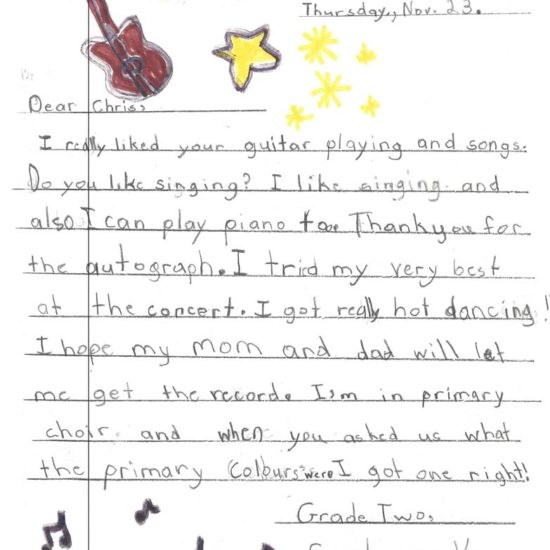 Thursday,, Nov. 23.
Dear Chris,
I really liked your guitar playing and songs.
Do you like singing? I like singing and
also I can play piano too Thankyou for
the autograph. I tried my very best
at the concert. I got really hot dancing!
I hope my mom and dad will let
me get the record. I,m in primary
choir. and when you asked us what
the primary colours were I got one right!
Grade Two,